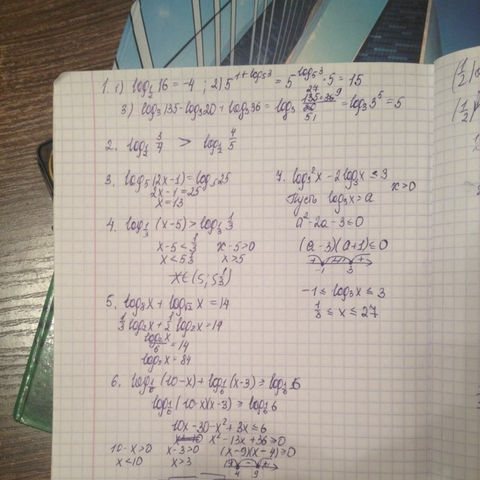 1. 1) log₁/₂ 16 = -4 ; 2) 5^(1+log₅3) = 5^(log₅3) · 5 = 15
3) log₃135 - log₃20 + log₃36 = log₃ = log₃3⁵ = 5
2. log 3/4 > log 4/5
3. log₅(2x-1) = log₅25
2x-1 = 25
x = 13
4. log₁/₃(x-5) > log₁/₃ 1/3
x-5 < 1/3 x-5>0
x < 5 1/3 x>5
x∈(5; 5 1/3)
5. log₈x + log√₂ x = 14
1/3 log₂x + log₂x = 14
= 14
log₂x = 84
6. log₁/₆(10-x) + log₁/₆(x-3) ≥ log₁/₆6
log₁/₆(10-x)(x-3) ≥ log₁/₆6
10x - 30 - x² + 3x ≤ 6
x² - 13x + 36 ≥ 0
10-x>0 x-3>0 (x-9)(x-4) ≥ 0
x<10 x>3
4 9
7. log₃²x - 2log₃x ≤ 3
x>0
Пусть log₃x = a
a² - 2a - 3 ≤ 0
(a-3)(a+1) ≤ 0
-1 3
-1 ≤ log₃x ≤ 3
1/3 ≤ x ≤ 27